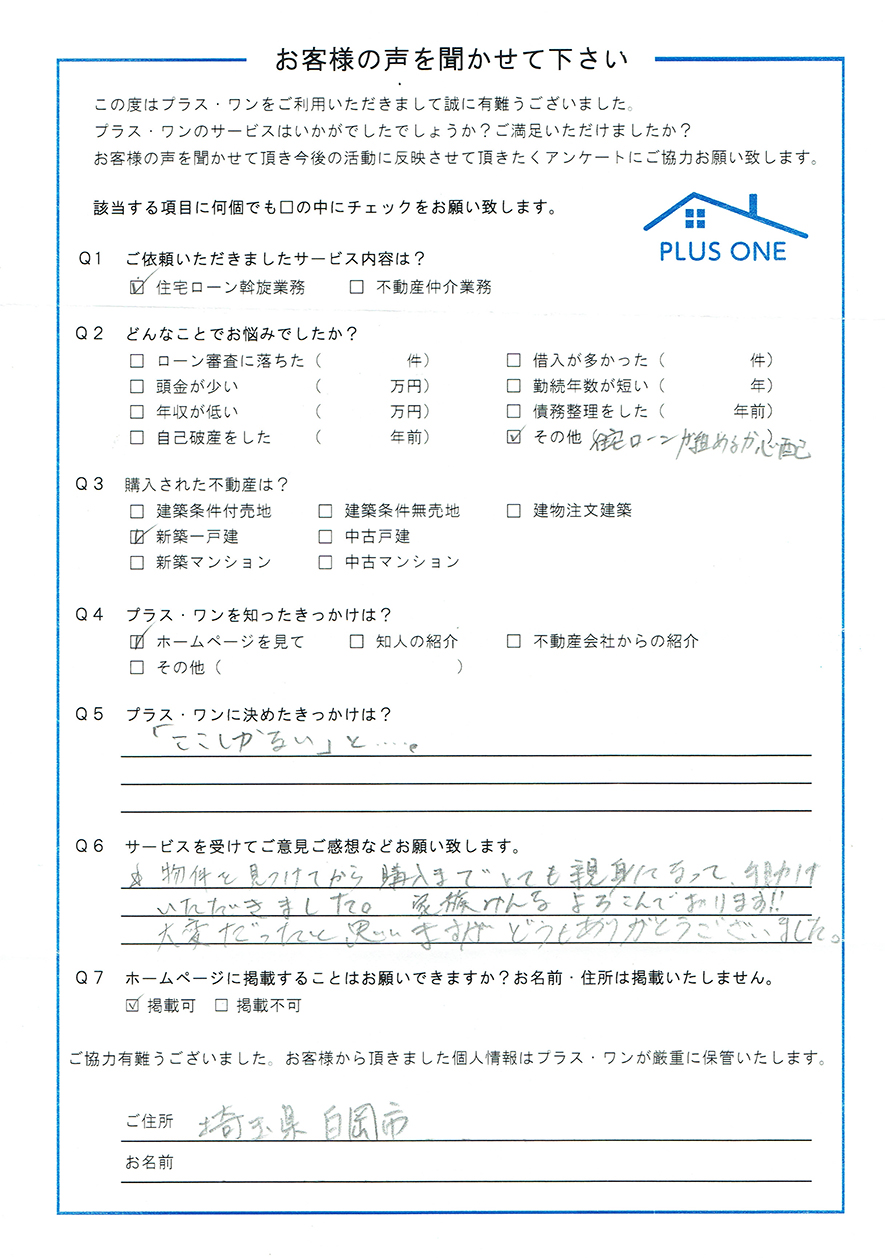 お客様の声を聞かせて下さい
この度はプラス・ワンをご利用いただきまして誠に有難うございました。
プラス・ワンのサービスはいかがでしたでしょうか？ご満足いただけましたか？
お客様の声を聞かせて頂き今後の活動に反映させて頂きたくアンケートにご協力お願い致します。
該当する項目に何個でも□の中にチェックをお願い致します。
PLUS ONE
Q1 ご依頼いただきましたサービス内容は？
☑ 住宅ローン斡旋業務 □ 不動産仲介業務
Q2 どんなことでお悩みでしたか？
□ ローン審査に落ちた（ 件） □ 借入が多かった（ 件）
□ 頭金が少い （ 万円） □ 勤続年数が短い（ 年）
□ 年収が低い （ 万円） □ 債務整理をした（ 年前）
□ 自己破産をした （ 年前） ☑ その他（住宅ローンが組めるか心配）
Q3 購入された不動産は？
□ 建築条件付売地 □ 建築条件無売地 □ 建物注文建築
☑ 新築一戸建 □ 中古戸建
□ 新築マンション □ 中古マンション
Q4 プラス・ワンを知ったきっかけは？
☑ ホームページを見て □ 知人の紹介 □ 不動産会社からの紹介
□ その他（ ）
Q5 プラス・ワンに決めたきっかけは？
「ここしかない」と……。
Q6 サービスを受けてご意見ご感想などお願い致します。
物件を見つけてから購入までとても親身になって、助け
いただきました。 家族みんなよろこんでおります!!
大変だったと思いますがどうもありがとうございました。
Q7 ホームページに掲載することはお願いできますか？お名前・住所は掲載いたしません。
☑ 掲載可 □ 掲載不可
ご協力有難うございました。お客様から頂きました個人情報はプラス・ワンが厳重に保管いたします。
ご住所 埼玉県白岡市
お名前